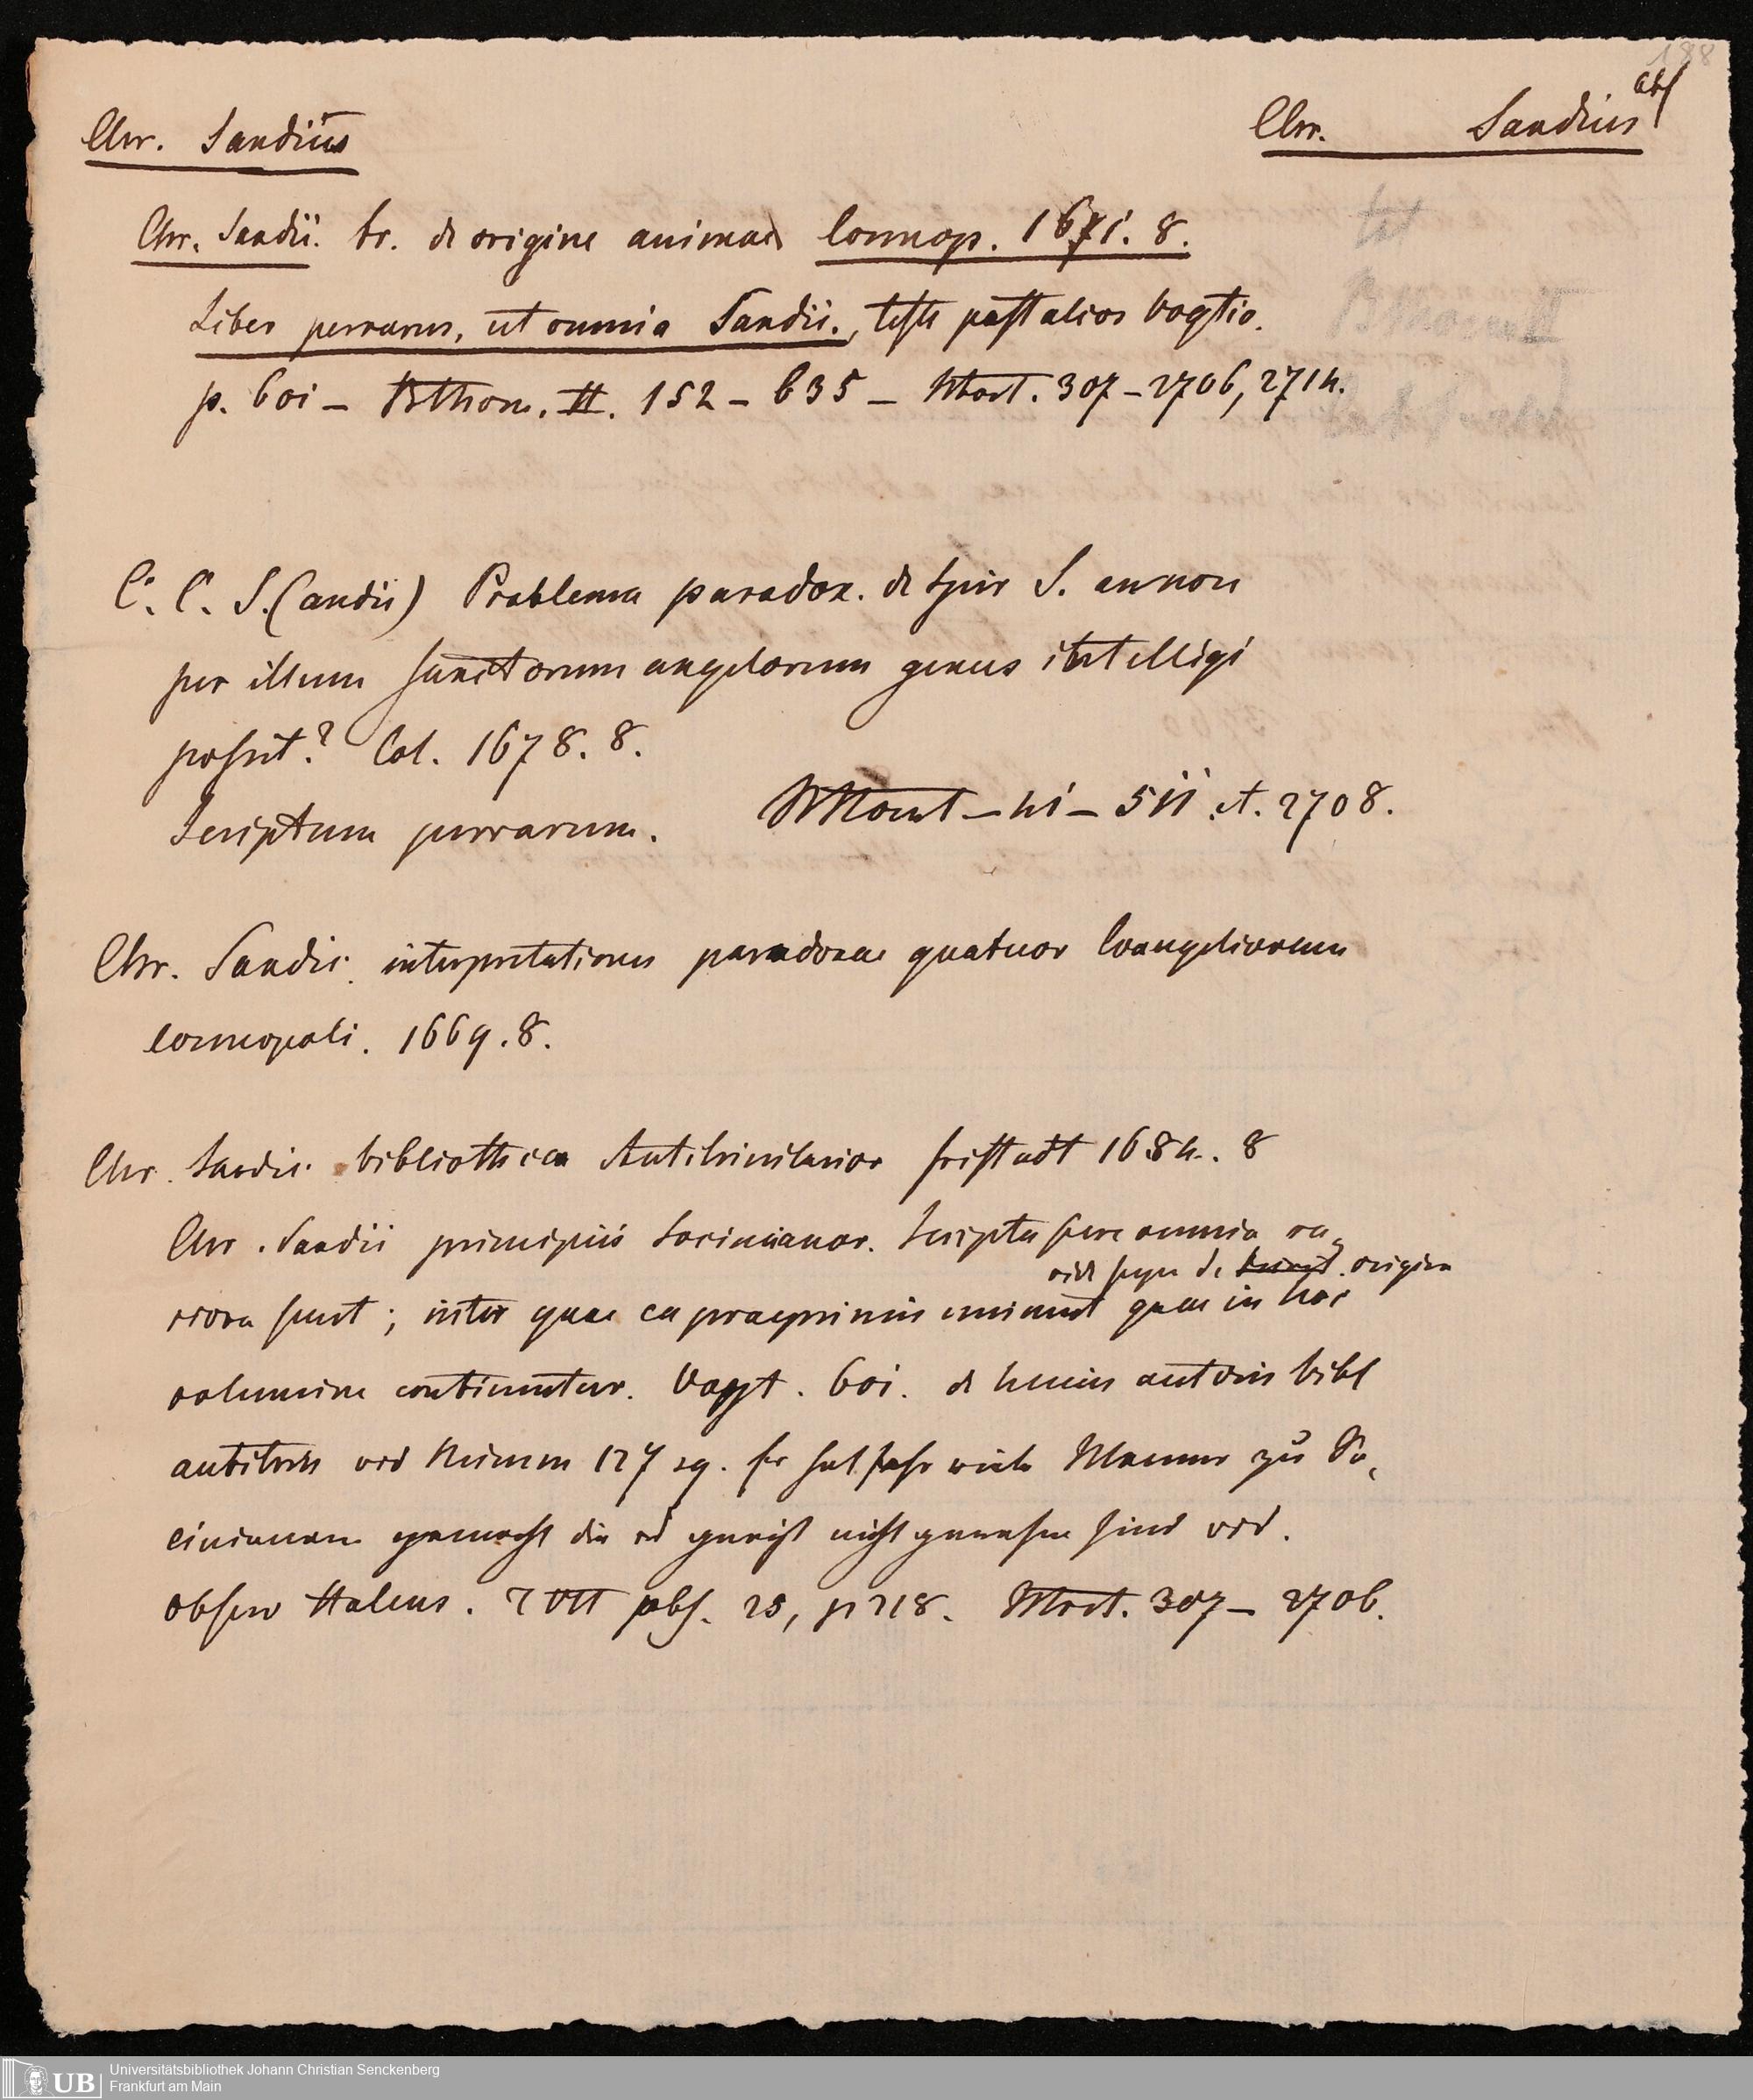 188
Chr. Sandius
Chr. Sandius
Chr. Sandii. tr. de origine animae Cosmop. 1671. 8.
Liber perrarus, ut omnia Sandii., teste post alios Vogtio.
p. 601 – BThom. II. 152 – 635 – 307 – 2706, 2714.
C. C. S.(andii) Problema paradox. de Spir S. annon
per illum sanctorum angelorum genus intelligi
possit? Col. 1678. 8.
Scriptum perrarum. – 41 – 511 et. 2708.
Chr. Sandii. interpretationes paradoxae quatuor Evangeliorum
Cosmopoli. 1669. 8.
Chr. Sandii. bibliotheca Antitrinitarior freistadt 1684. 8
Chr. Sandii principiis Socinianor. Scripta fere omnia ra-
de origine
riora sunt; inter quae ea praeprimis eminent quae in hoc
volumine continentur. Vogt. 601. de huius autoris bibl
antitrin vid 127 sq. hat sehr viele Männer zu So-
cinianern gemacht die es gewiß nicht gewesen sind vid.
observ Halens. T VII obs. 25, p 218. 307 – 2706.
UB
Universitätsbibliothek Johann Christian Senckenberg
Frankfurt am Main